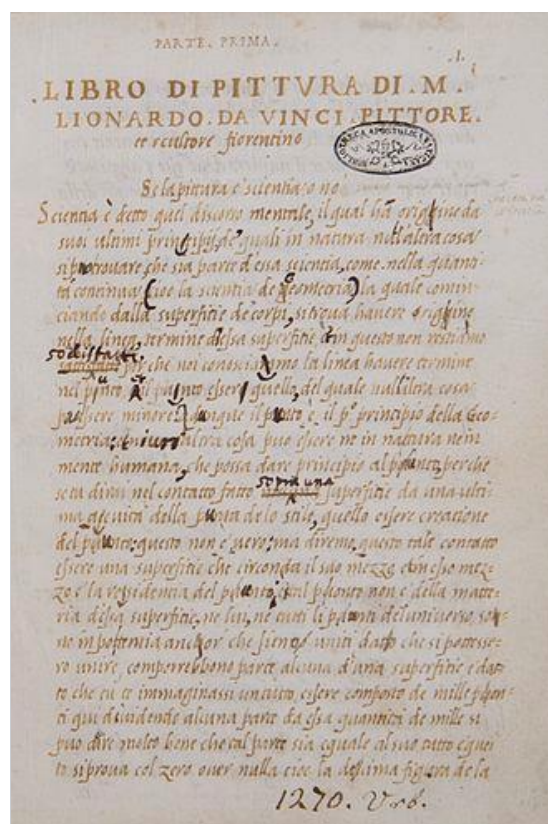 PARTE. PRIMA.
.1.
.LIBRO DI PITTVRA DI. M.
LIONARDO. DA VINCI. PITTORE.
et scultore fiorentino
BIBLIOTHECA APOSTOLICA VATICANA
Se la pittura è scientia o no
Scientia è detto quel discorso mentale, il qual hà origine da
suoi ultimi principij, de quali in natura null'altra cosa
si può trovare, che sia parte d'essa scientia, come nella quanti=
tà continua (cioe la scientia de geometria) la quale comin=
ciando dalla superfitie de corpi, si trova havere origine
nella linea, termine d'essa superfitie et in questo non restiamo
sodisfatti,
perche noi conosciamo la linea havere termine
nel punto, et il punto essere quello, del quale null'altra cosa
può essere minore. dunque il punto è, il p.º principio della Geo=
metria, et niuna altra cosa può essere ne in natura ne in
mente humana, che possa dare principio al punto, perche
sopra una
se tu dirai nel contatto fatto superfitie da una ulti=
ma acuità della punta de lo stile, quello essere creatione
del punto: questo non è vero, ma diremo, questo tale contatto
essere una superfitie che circonda il suo mezzo et in esso mez=
zo è la residentia del punto, et tal punto non è della matte=
ria d'essa superfitie, ne lui, ne tutti li punti del universo, so=
no in potentia anchor che sieno uniti dato che si potesse=
ro unire, comporrebbono parte alcuna d'una superfitie e da=
to che tu te immaginassi un tutto, essere composto de mille pon=
ti qui dividendo alcuna parte da essa quantità de mille si
può dire molto bene che tal parte sia equale al suo tutto e quei
to si prova col zero over nulla cioe la decima figura de la
1270. Urb.